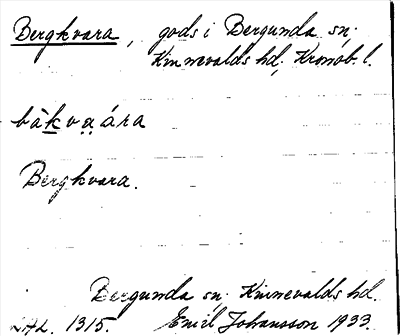 Bergkvara, gods i Bergunda sn;
Kinnevalds hd; Kronob. l.
bàkvạára
Bergkvara.
Bergunda sn; Kinnevalds hd.
LAL. 1315. Emil Johansson 1933.